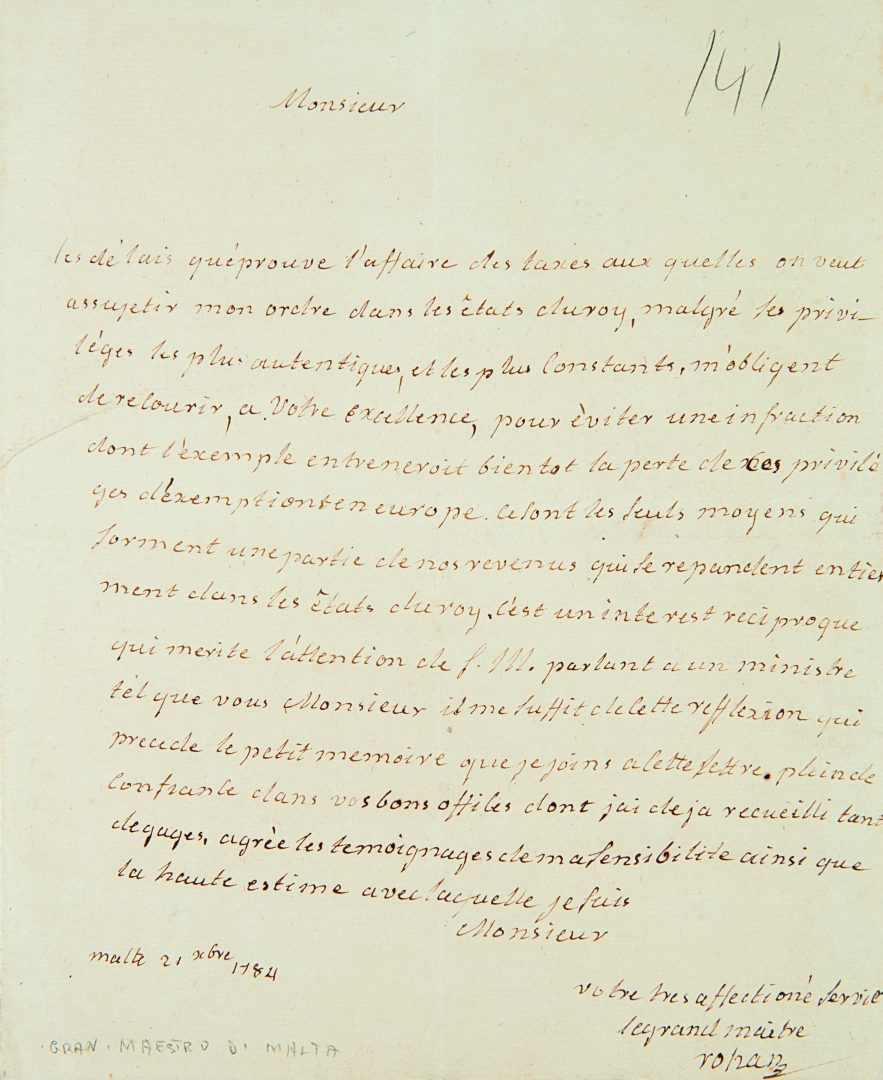 141
Monsieur
les délais qu'éprouve l'affaire des taxes aux quelles on veut
assujetir mon ordre dans les États du roy, malgré ses privi-
léges les plus autentiques, et les plus constants, m'obligent
de recourir, a Votre Excellence, pour éviter une infraction
dont l'éxemple entreneroit bientot la perte de ces privilé
ges d'éxemptions en europe. Ce sont les seuls moyens qui
forment une partie de nos revenus qui se repandent entier
ment dans les États du roy, c'est un interest reciproque
qui merite l'attention de S. M. parlant a un ministre
tél que vous Monsieur il me suffit de cette refflexion qui
precede le petit memoire que je joins a cette lettre. plein de
confiance dans vos bons offices dont jai deja recueilli tant
de gages, agrée les temoignages de ma sensibilite ainsi que
la haute estime avec laquelle je suis
Monsieur
malte 21 xbre 1784
votre tres affectioné servit
le grand maitre
rohan
GRAN. MAESTRO DI MALTA